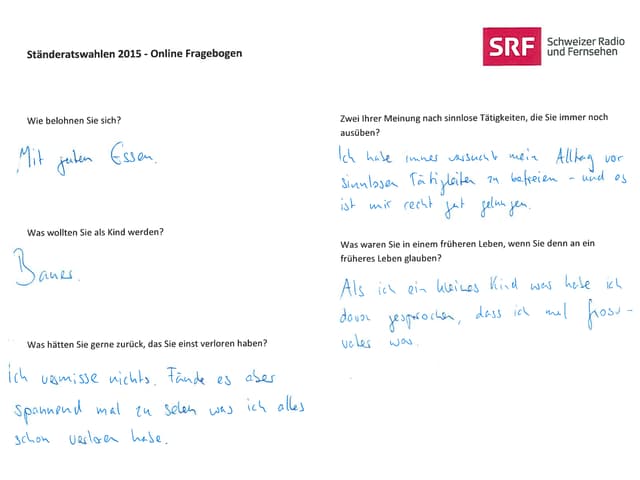 Ständeratswahlen 2015 - Online Fragebogen
SRF Schweizer Radio
und Fernsehen
Wie belohnen Sie sich?
Mit guten Essen.
Was wollten Sie als Kind werden?
Bauer.
Was hätten Sie gerne zurück, das Sie einst verloren haben?
Ich vermisse nichts. Fände es aber
spannend mal zu sehen was ich alles
schon verloren habe.
Zwei Ihrer Meinung nach sinnlose Tätigkeiten, die Sie immer noch
ausüben?
Ich habe immer versucht mein Alltag vor
sinnlosen Tätigkeiten zu befreien - und es
ist mir recht gut gelungen.
Was waren Sie in einem früheren Leben, wenn Sie denn an ein
früheres Leben glauben?
Als ich ein kleines Kind war habe ich
davon gesprochen, dass ich mal
war.